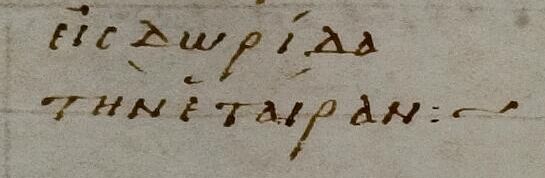 εἰς Δωρίδα
τὴν ἑταίραν :~